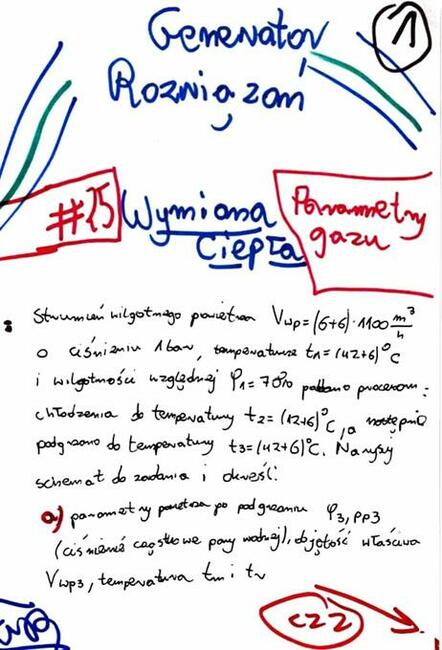 1
Generator
Rozwiązań
#25 Wymiana Ciepła
Parametry gazu
: Strumień wilgotnego powietrza Vwp=(6+6)·1100 m³/h
o ciśnieniu 1bar, temperaturze t1=(42+6)°C
i wilgotności względnej φ1=70% poddano procesom:
chłodzenia do temperatury t2=(12+6)°C, a następnie
podgrzano do temperatury t3=(42+6)°C. Narysuj
schemat do zadania i określ:
a) parametry powietrza po podgrzaniu φ3, pp3
(ciśnienie cząstkowe pary wodnej), objętość właściwa
Vwp3, temperatura tm i tr
cz2